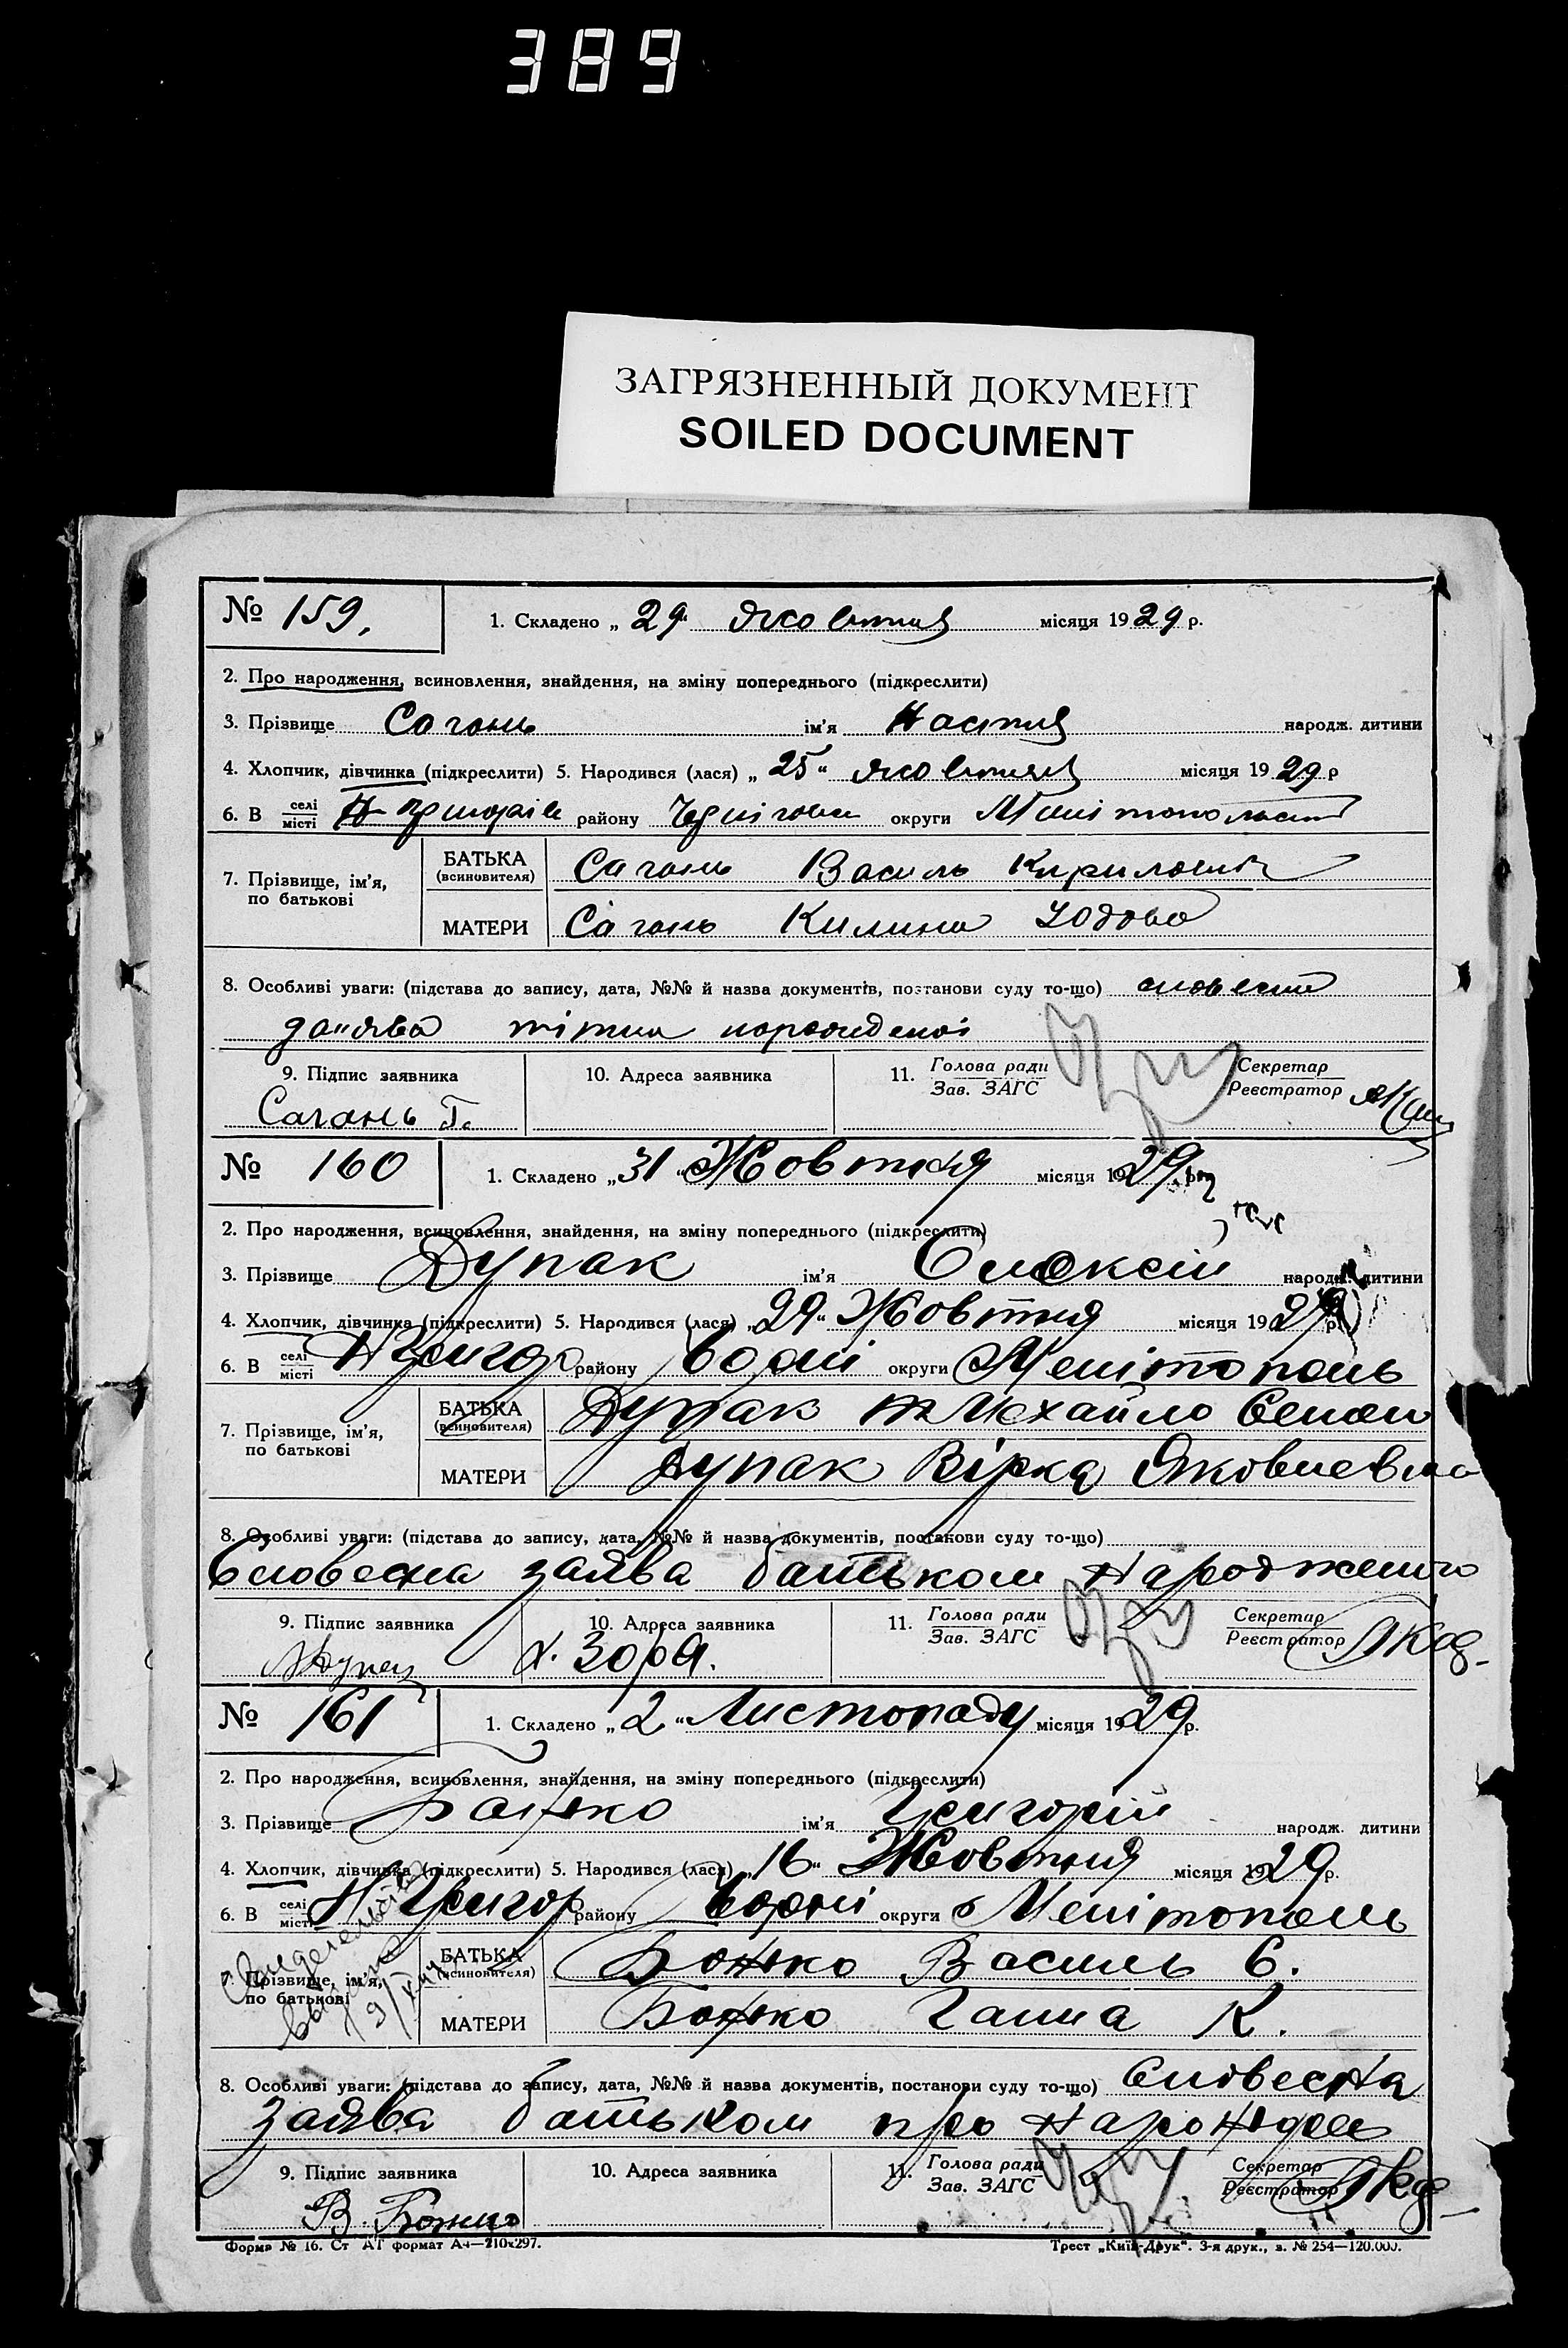 389
ЗАГРЯЗНЕННЫЙ ДОКУМЕНТ
SOILED DOCUMENT
№ 159. 1. Складено „29“ жовтня місяця 1929 р.
2. Про народження, всиновлення, знайдення, на зміну попереднього (підкреслити)
3. Прізвище Сагань ім'я Настя народж. дитини
4. Хлопчик, дівчинка (підкреслити) 5. Народився (лася) „25“ жовтня місяця 1929 р
6. В селі/місті району округи
7. Прізвище, ім'я, по батькові
БАТЬКА (всиновителя) Сагань Василь Кирилович
МАТЕРИ Сагань Килина
8. Особливі уваги: (підстава до запису, дата, №№ й назва документів, постанови суду то-що)
9. Підпис заявника 10. Адреса заявника 11. Голова ради Зав. ЗАГС Секретар Реєстратор
Сагань Г.
№ 160 1. Складено „31“ Жовтня місяця 1929 р.
2. Про народження, всиновлення, знайдення, на зміну попереднього (підкреслити)
3. Прізвище Дупак ім'я Олексій народж. дитини
4. Хлопчик, дівчинка (підкреслити) 5. Народився (лася) „29“ Жовтня місяця 1929 р
6. В селі/місті Н Григор району округи Мелітополь
7. Прізвище, ім'я, по батькові
БАТЬКА (всиновителя) Дупак Михайло
МАТЕРИ Дупак Вірка Яковлевна
8. Особливі уваги: (підстава до запису, дата, №№ й назва документів, постанови суду то-що)
Словесна заява батьком Народженого
9. Підпис заявника 10. Адреса заявника 11. Голова ради Зав. ЗАГС Секретар Реєстратор
х. Зоря.
№ 161 1. Складено „2“ Листопаду місяця 1929 р.
2. Про народження, всиновлення, знайдення, на зміну попереднього (підкреслити)
3. Прізвище Божко ім'я Григорій народж. дитини
4. Хлопчик, дівчинка (підкреслити) 5. Народився (лася) „16“ Жовтня місяця 1929 р.
6. В селі/місті Н Григор району округи Мелітополь
7. Прізвище, ім'я, по батькові
БАТЬКА (всиновителя) Божко Василь С.
МАТЕРИ Божко Ганна К.
8. Особливі уваги: (підстава до запису, дата, №№ й назва документів, постанови суду то-що) Словесна
заява батьком про
9. Підпис заявника 10. Адреса заявника 11. Голова ради Зав. ЗАГС Секретар Реєстратор
В. Божко
Форма № 16. Ст АТ формат А4—210х297. Трест „Київ-Друк“. 3-я друк., з. № 254—120.000.